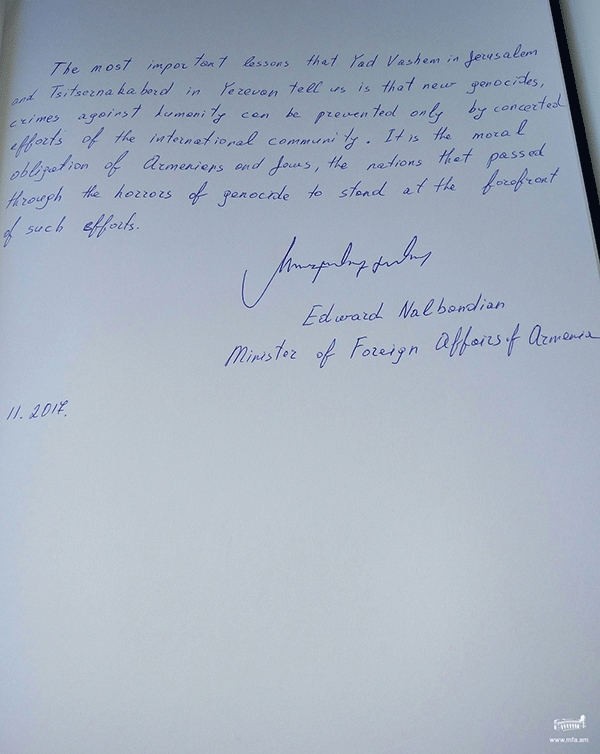 The most important lessons that Yad Vashem in Jerusalem
and Tsitsernakaberd in Yerevan tell us is that new genocides,
crimes against humanity can be prevented only by concerted
efforts of the international community. It is the moral
obligation of Armenians and Jews, the nations that passed
through the horrors of genocide to stand at the forefront
of such efforts.
Edward Nalbandian
Minister of Foreign Affairs of Armenia
11.2017.
www.mfa.am